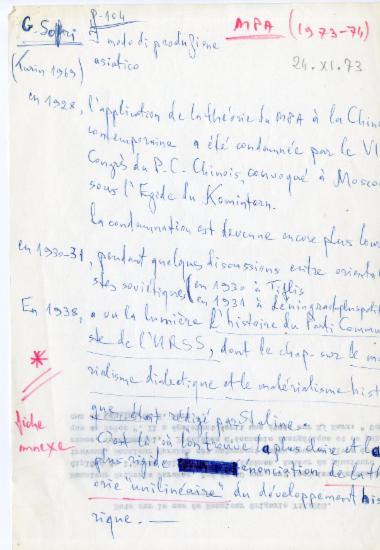 G. Sofri
P-104
MPA (1973-74)
Il modo di produzione
asiatico
(Turin 1969)
24.XI.73
en 1928, l'application de la théorie du MPA à la Chine
contemporaine a été condamnée par le VI
Congrès du P.C. Chinois, convoqué à Moscou
sous l'Egide du Komintern.
la condamnation est devenue encore plus lour
en 1930-31, pendant quelques discussions entre oriental
stes soviétiques (en 1930 à Tiflis
(en 1931 à Léningrad
En 1938, a vu la lumière l'histoire du Parti Commu
ste de l'URSS, dont le chap. sur le ma
rialisme dialectique et le matérialisme hist
que était rédigé par Staline.
C'est là où l'on trouve la plus claire et la
plus rigide énonciation de la th
orie "unilinéaire" du développement his
rique. —
fiche
annexe